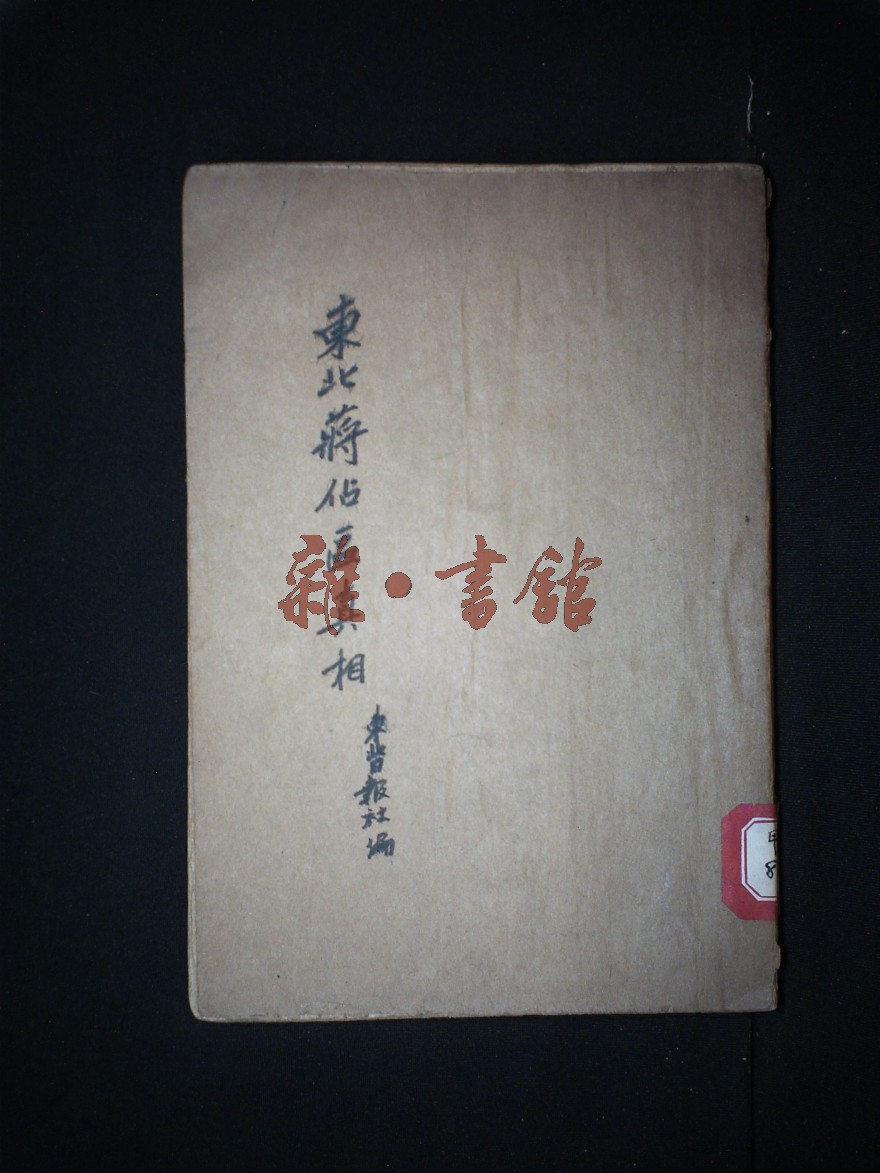 東北蔣佔區真相
東北日報社編
雜·書館
8